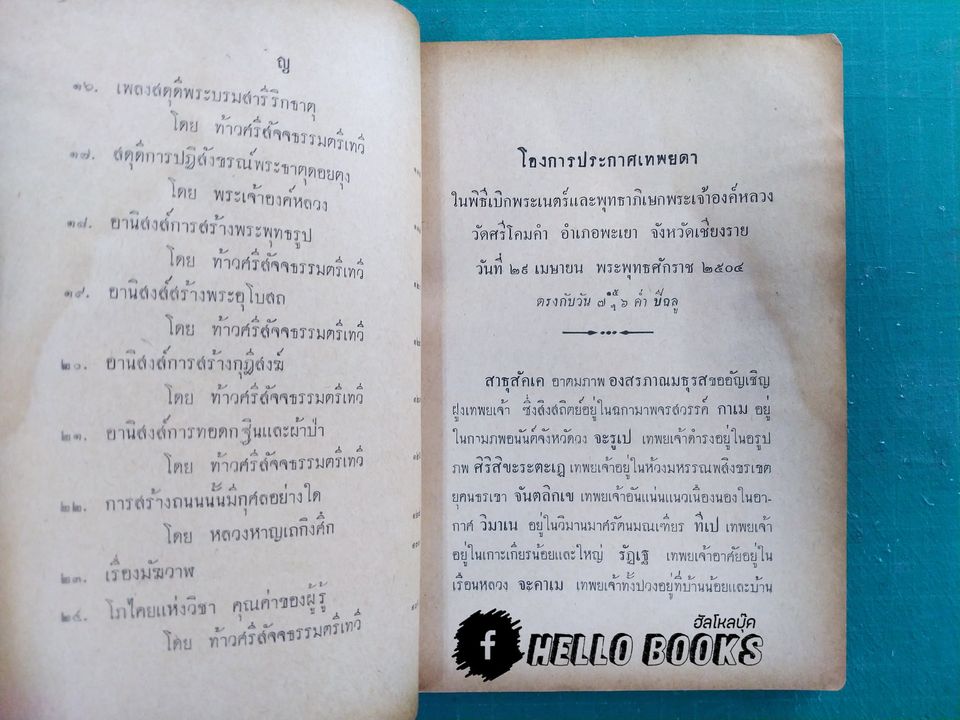 ญ
๑๖. เพลงสดุดีพระบรมสารีริกธาตุ
โดย ท้าวศรีสัจจธรรมตรีเทวี
๑๗. สดุดีการปฏิสังขรณ์พระธาตุดอยตุง
โดย พระเจ้าองค์หลวง
๑๘. อานิสงส์การสร้างพระพุทธรูป
โดย ท้าวศรีสัจจธรรมตรีเทวี
๑๙. อานิสงส์สร้างพระอุโบสถ
โดย ท้าวศรีสัจจธรรมตรีเทวี
๒๐. อานิสงส์การสร้างกุฏิสงฆ์
โดย ท้าวศรีสัจจธรรมตรีเทวี
๒๑. อานิสงส์การทอดกฐินและผ้าป่า
โดย ท้าวศรีสัจจธรรมตรีเทวี
๒๒. การสร้างถนนนั้นมีกุศลอย่างใด
โดย หลวงหาญเถกิงศึก
๒๓. เรื่องมัฆวาฬ
๒๔. โภไคยแห่งวิชา คุณค่าของผู้รู้
โดย ท้าวศรีสัจจธรรมตรีเทวี
โองการประกาศเทพยดา
ในพิธีเบิกพระเนตร์และพุทธาภิเษกพระเจ้าองค์หลวง
วัดศรีโคมคำ อำเภอพะเยา จังหวัดเชียงราย
วันที่ ๒๙ เมษายน พระพุทธศักราช ๒๕๐๔
ตรงกับวัน ๗ ๑๕ ๖ ค่ำ ปีฉลู
สาธุสัคเค อาตมภาพ องสรภาณมธุรสขออัญเชิญ
ฝูงเทพยเจ้า ซึ่งสิงสถิตย์อยู่ในฉกามาพจรสวรรค์ กาเม อยู่
ในกามภพอนันต์จังหวัดวง จะรูเป เทพยเจ้าดำรงอยู่ในอรูป
ภพ สิริสิขะระตะเฏ เทพยเจ้าอยู่ในห้วงมหรรณพสิงขรเขต
ยุคนธรเขา จันตลิกเข เทพยเจ้าอันแน่นแนวเนื่องนองในอา-
กาศ วิมาเน อยู่ในวิมานมาศรัตนมณเฑียร ทีเป เทพยเจ้า
อยู่ในเกาะเกียรน้อยและใหญ่ รัฏเฐ เทพยเจ้าอาศัยอยู่ใน
เรือนหลวง จะคาเม เทพยเจ้าทั้งปวงอยู่ที่บ้านน้อยและบ้าน
ฮัลโหลบุ๊ค
f HELLO BOOKS